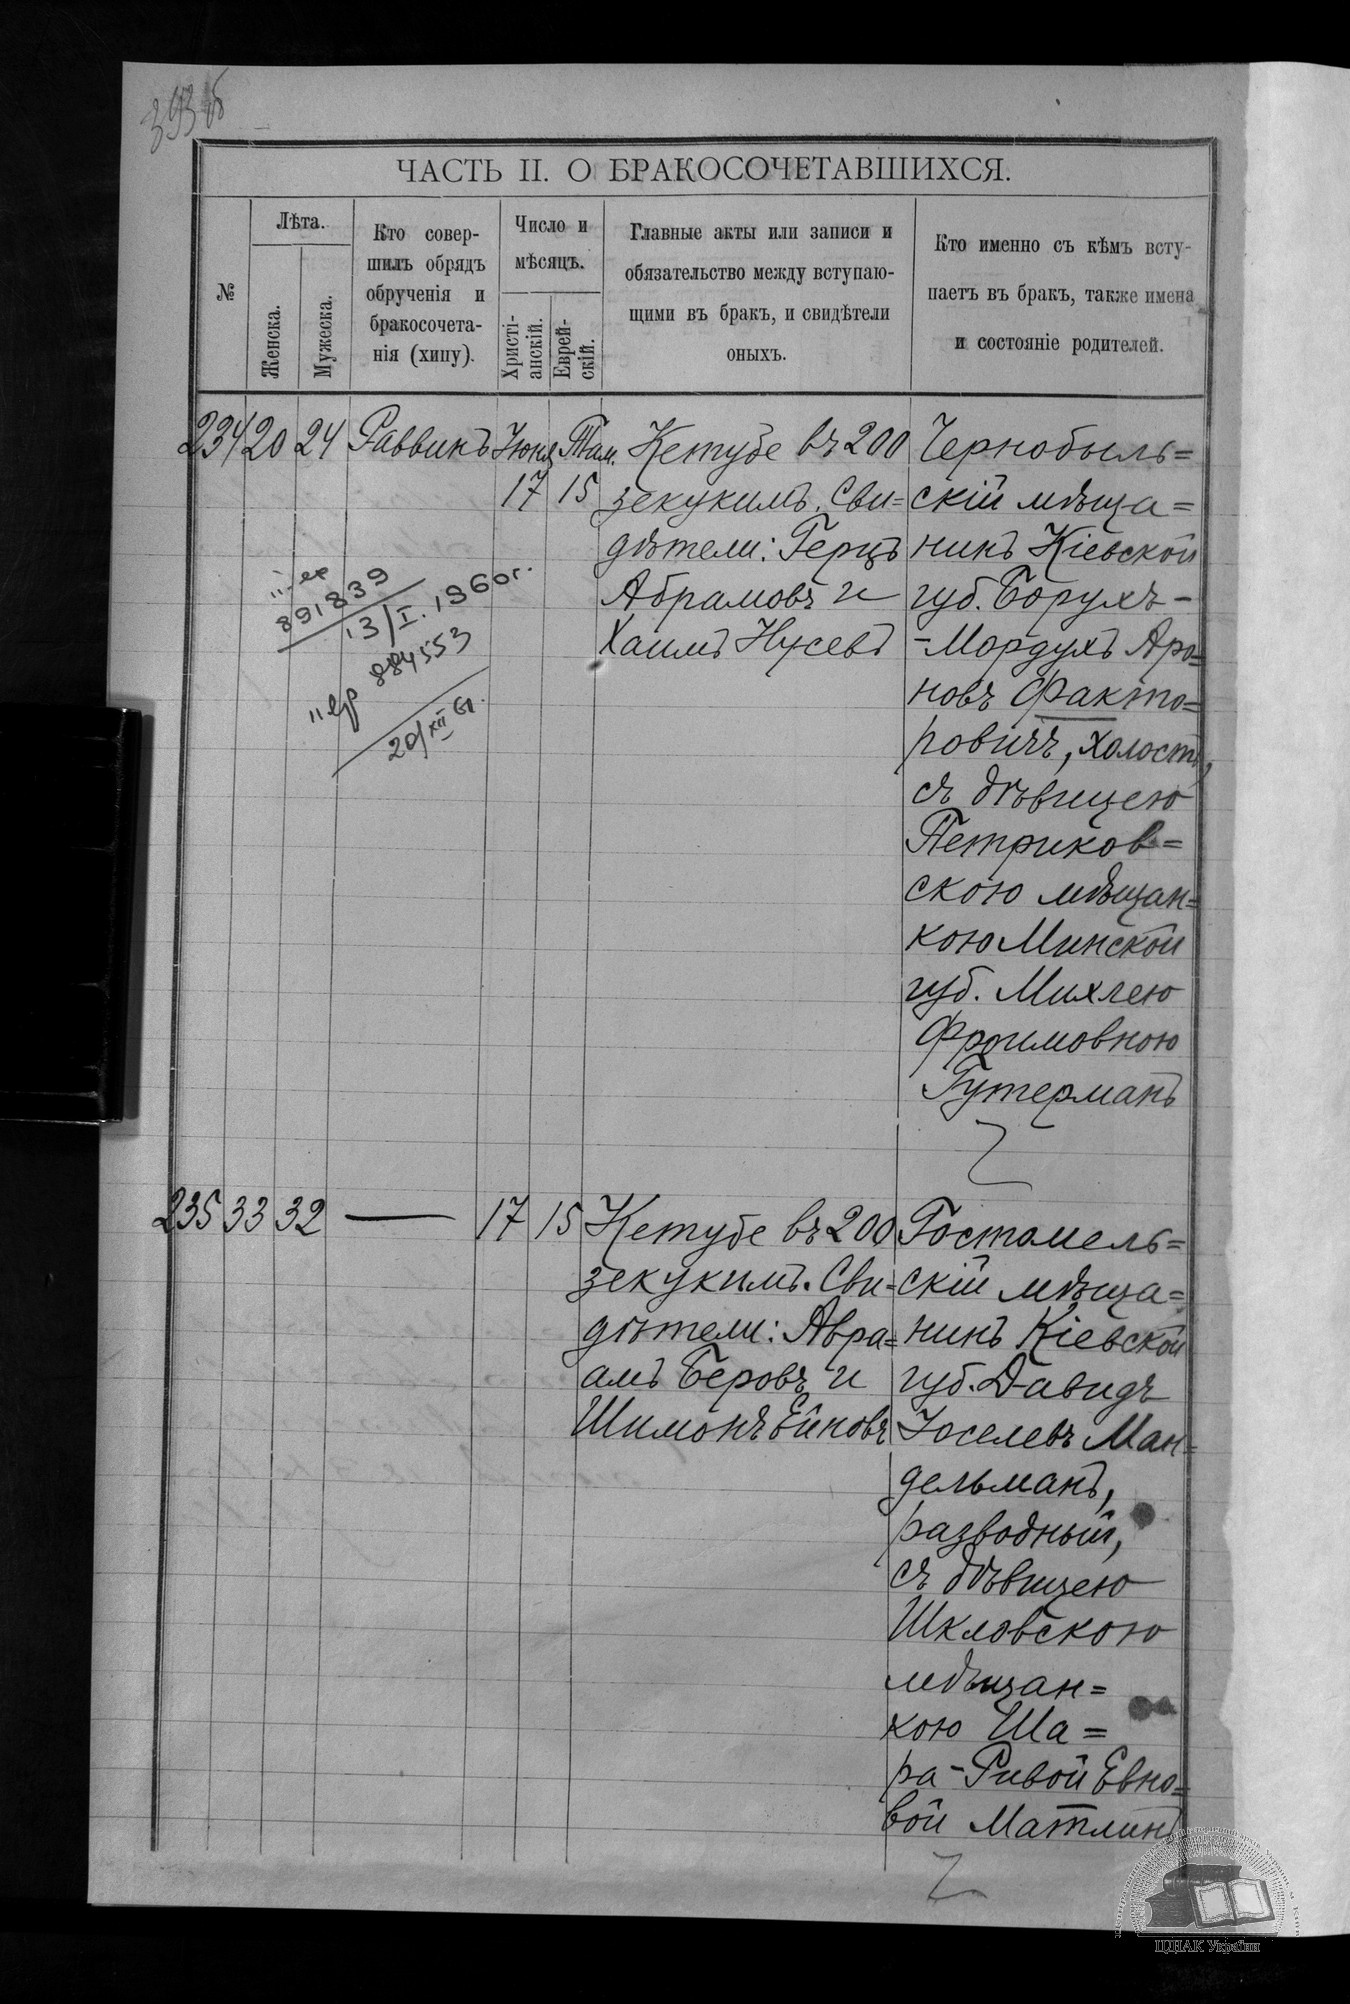 ЧАСТЬ II. О БРАКОСОЧЕТАВШИХСЯ.
№
Лѣта.
Женска.
Мужеска.
Кто совер-
шилъ обрядъ
обрученія и
бракосочета-
нія (хипу).
Число и
мѣсяцъ.
Христі-
анскій.
Еврей-
скій.
Главные акты или записи и
обязательство между вступаю-
щими въ бракъ, и свидѣтели
оныхъ.
Кто именно съ кѣмъ всту-
паетъ въ бракъ, также имена
и состояніе родителей.
234 20 24 Раввинъ Іюня 17 Там. 15
Кетубе въ 200
зекукимъ. Сви=
дѣтели: Герцъ
Абрамовъ и
Хаимъ Нусевъ
Чернобыль=
скій мѣща=
нинъ Кіевской
губ. Борухъ-
-Мордухъ Аро=
новъ Факто=
ровичъ, холостъ,
съ дѣвицею
Петриков=
скою мѣщан=
кою Минской
губ. Михлею
Фроимовною
Гутерманъ
891839
13/I. 1960г.
884553
20/XII 61.
235 33 32 — 17 15
Кетубе въ 200
зекукимъ. Сви=
дѣтели: Авра=
амъ Беровъ и
Шимонъ Ейновъ
Гостомель=
скій мѣща=
нинъ Кіевской
губ. Давидъ
Іоселевъ Ман=
дельманъ,
разводный,
съ дѣвицею
Шкловскою
мѣщан=
кою Ша=
ра-Ривой Евно=
вой Матлинъ
ЦДІАК України